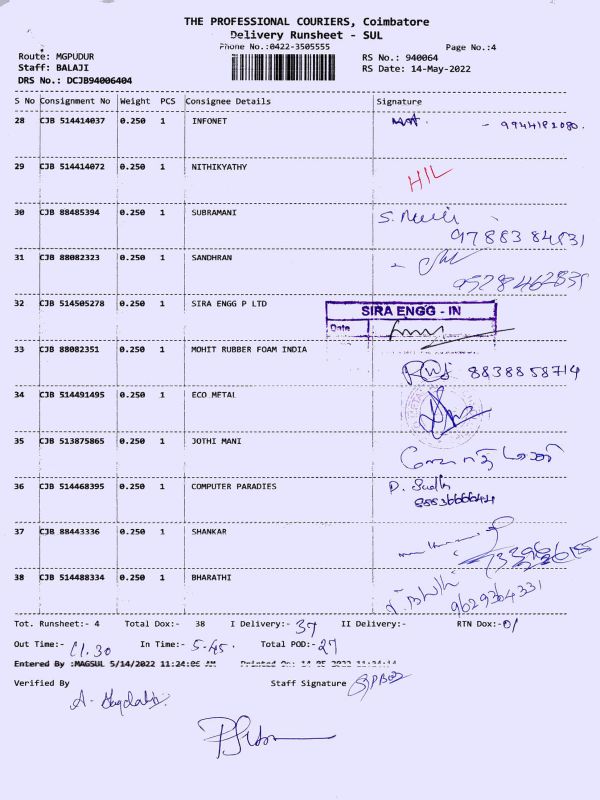 THE PROFESSIONAL COURIERS, Coimbatore
Delivery Runsheet - SUL
Phone No.:0422-3505555
Page No.:4
Route: MGPUDUR
RS No.: 940064
Staff: BALAJI
RS Date: 14-May-2022
DRS No.: DCJB94006404
S No Consignment No Weight PCS Consignee Details Signature
28 CJB 514414037 0.250 1 INFONET - 9944192080.
29 CJB 514414072 0.250 1 NITHIKYATHY HIL
30 CJB 88485394 0.250 1 SUBRAMANI S.
9788384831
31 CJB 88082323 0.250 1 SANDHRAN
32 CJB 514505278 0.250 1 SIRA ENGG P LTD SIRA ENGG - IN
Date
33 CJB 88082351 0.250 1 MOHIT RUBBER FOAM INDIA 8838858714
34 CJB 514491495 0.250 1 ECO METAL
35 CJB 513875865 0.250 1 JOTHI MANI
36 CJB 514468395 0.250 1 COMPUTER PARADIES
37 CJB 88443336 0.250 1 SHANKAR
38 CJB 514488334 0.250 1 BHARATHI 9629364331
Tot. Runsheet:- 4 Total Dox:- 38 I Delivery:- 37 II Delivery:- RTN Dox:- 01
Out Time:- 11.30 In Time:- 5.45. Total POD:- 27
Entered By :MAGSUL 5/14/2022 11:24:06 AM Printed On: 14-05-2022 11:24:14
Verified By Staff Signature